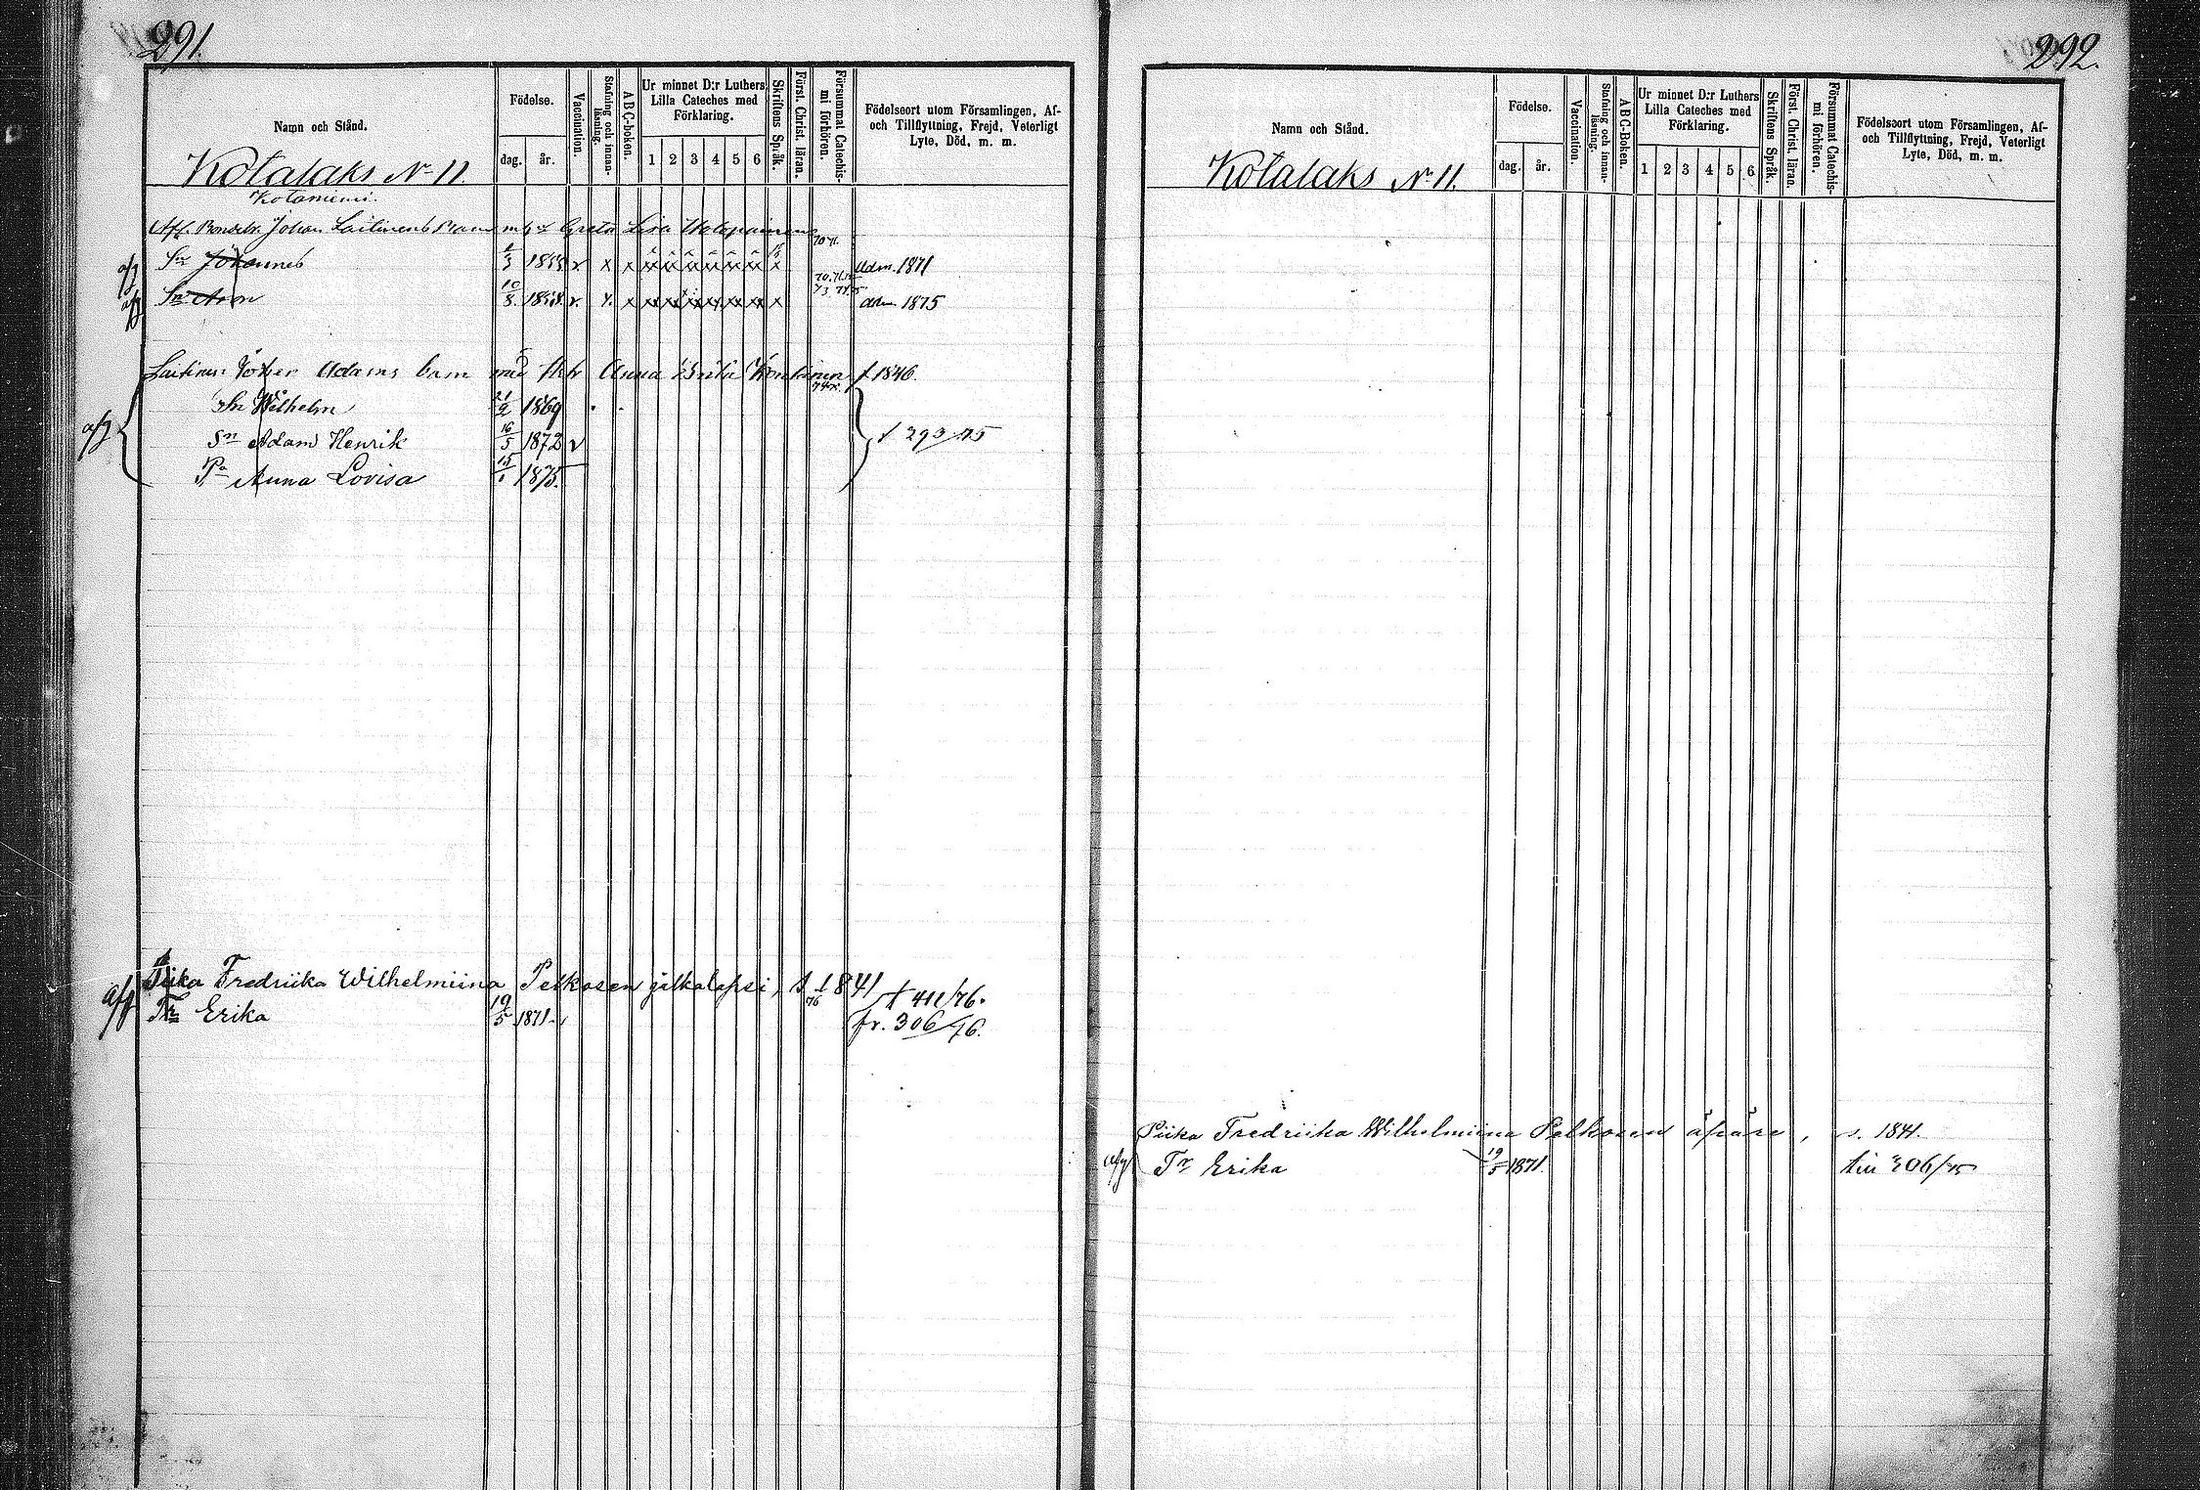 291.
Namn och Stånd.
Födelse.
dag. år.
Vaccination.
Stafning och innan-läsning.
ABC-boken.
Ur minnet D:r Luthers Lilla Cateches med Förklaring.
1 2 3 4 5 6
Skriftens Språk.
Först. Christ. läran.
Försummat Catechis-mi förhören.
Födelseort utom Församlingen, Af-
och Tillflyttning, Frejd, Veterligt
Lyte, Död, m. m.
Kotalaks No 11.
Kotaniemi.
Afl. Johan Laitinens barn m Greta Lisa Holopainen
70 71.
afg Sn Johannes 1853 v x x x Adm. 1871
afg Sn Aron 10/8 1858 v. x. x x adm 1875
Laitinen Adams barn med Anna Brita f 1846.
Sn Wilhelm 21/2 1869
afg Sn Adam Henrik 16/5 1872 v t 293/75
Pa Anna Lovisa 15/1 1875.
Piika Fredriika Wilhelmiina Pelkosen jälkalapsi, s. 1841
t 411/76.
afg Tr Erika 19/5 1871. fr. 306/76.
292.
Namn och Stånd.
Födelse.
dag. år.
Vaccination.
Stafning och innan-läsning.
ABC-Boken.
Ur minnet D:r Luthers Lilla Cateches med Förklaring.
1 2 3 4 5 6
Skriftens Språk.
Först. Christ. läran.
Försummat Catechis-mi förhören.
Födelseort utom Församlingen, Af-
och Tillflyttning, Frejd, Veterligt
Lyte, Död, m. m.
Kotalaks No 11.
Piika Fredriika Wilhelmiina Pelkosen äpäre, s. 1841.
afg Tr Erika 19/5 1871. 306/75